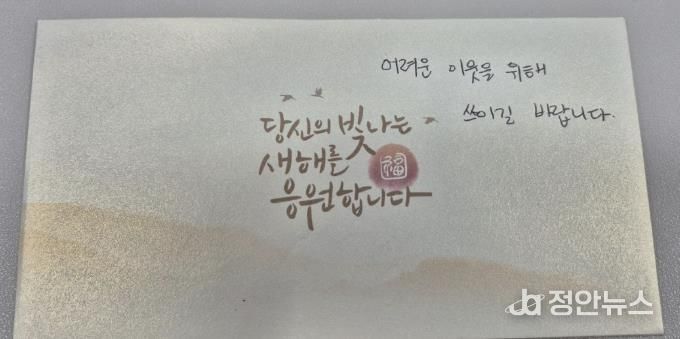 어려운 이웃을 위해
쓰이길 바랍니다.
당신의 빛나는
새해를
福
응원합니다
정안뉴스